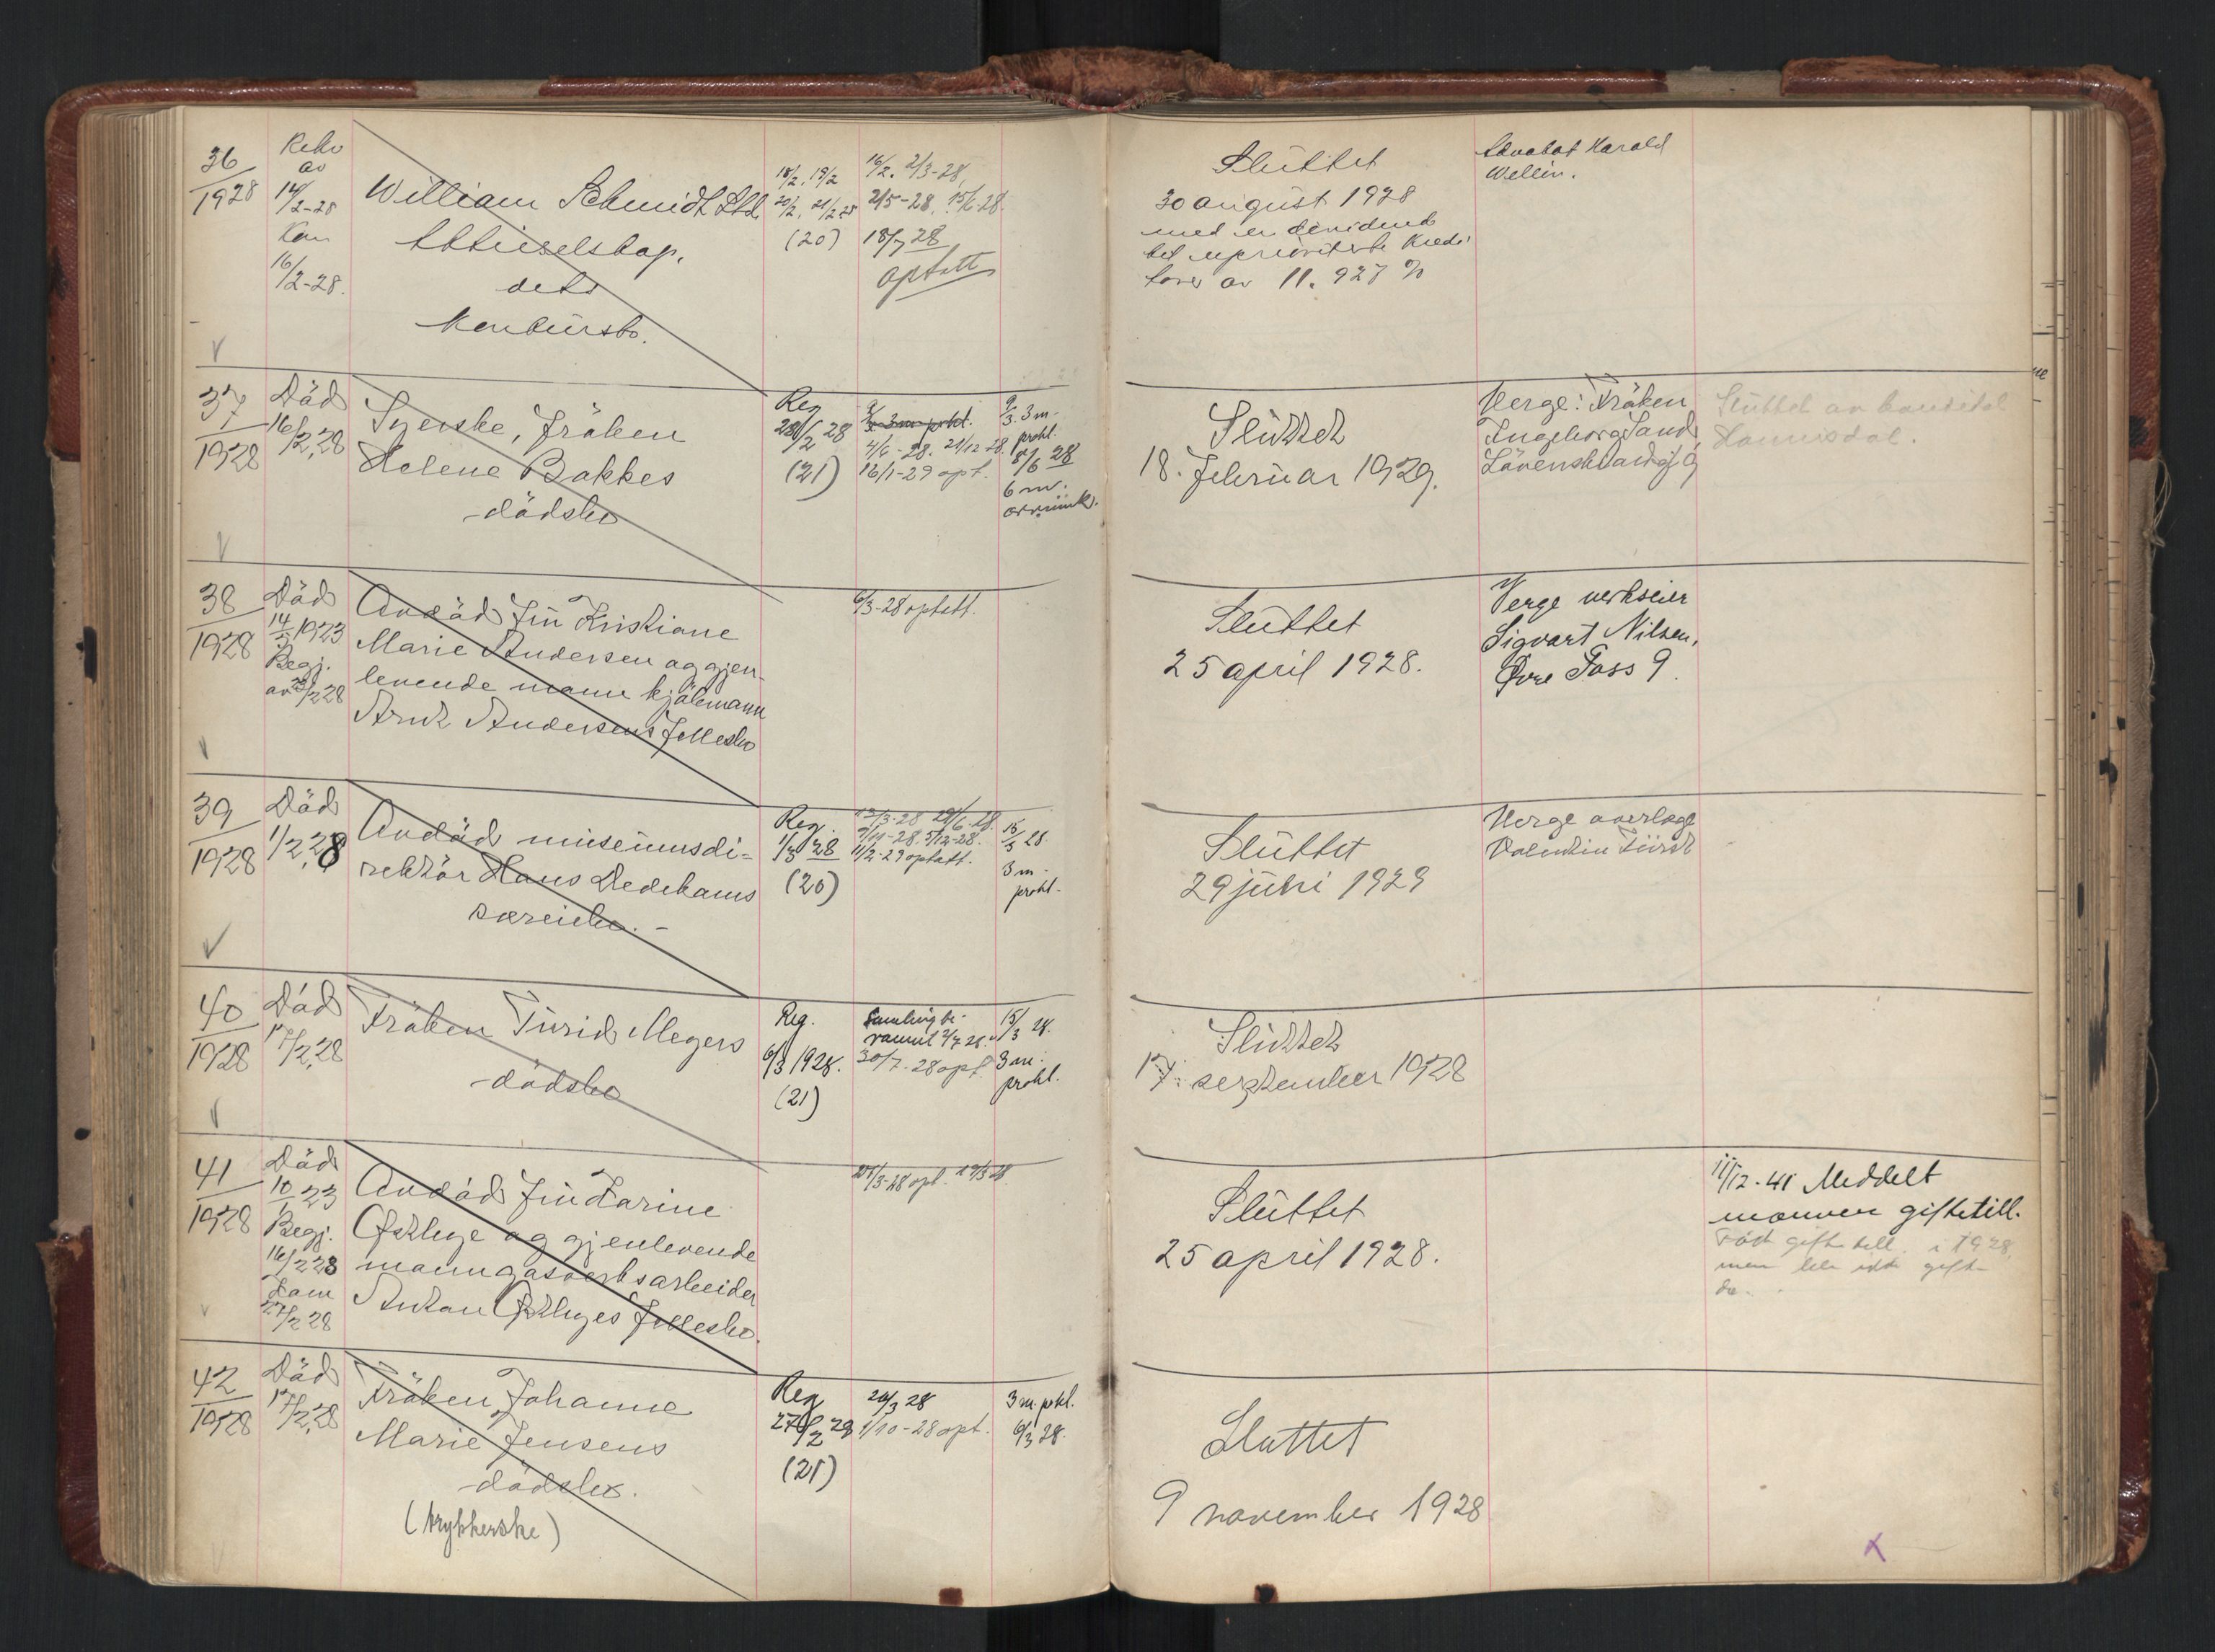 36
1928
av
14/2-28
16/2-28.
William Schmidt Ltd.
Aktieselskap,
dets
konkursbo.
18/2, 19/2
20/2, 21/2 28
(20)
16/2. 2/3-28,
2/5-28. 15/6 28.
18/7 28
optatt
Sluttet
30 august 1928
med en dividende
til uprioriterte kredi
torer av 11.927 %
Advokat Harald
Wellin.
37
1928
Död
16/2.28
Syerske, fröken
Helene Bakkes
dödsbo
Reg
28/2 28
(21)
3 m prkl.
4/6-28. 21/12 28.
16/1-29 opt.
9/3. 3 m.
prkl.
8/6 28
6 m.
Sluttet
18. februar 1929.
Verge: Fröken
Ingeborg Sand,
Sluttet av
Hannisdal.
38
1928
Död
14/5 1923
Begj.
av 23/2 28
Avdöd fru Kristiane
Marie Andersen og gjen-
levende mann kjölemann
Arnt Andersens fellesbo
6/3-28 optatt.
Sluttet
25 april 1928.
Verge verkseier
Sigvart Nilsen,
Øvre Foss 9.
39
1928
Död
1/2.28
Avdöd museumsdi-
rektör Hans Dedekams
særeiebo. -
Reg.
1/3 28
(20)
13/3-28 29/6-28.
9/11-28. 5/12-28.
11/2-29 optatt.
15/3 28.
3 m.
prkl.
Sluttet
29 juni 1929
Verge overlæge
Valentin Fürst
40
1928
Död
17/2.28
Fröken Turid Meyers
dödsbo
Reg.
6/3 1928.
(21)
Samling be-
rammet 2/7 28.
30/7-28 opt.
15/3 28.
3 m.
prkl.
Sluttet
17. september 1928
41
1928
Död
10/1 23
Begj.
16/2 28
27/2 28
Avdöd fru Karine
Østbye og gjenlevende
mann gasverksarbeider
Anton Østbyes fellesbo.
20/3-28 opt. 19/3 28
Sluttet
25 april 1928.
11/12-41 Meddelt
mannen giftetill.
Fått giftetill. i 1928,
men ble ikke gift
da.
42
1928
Död
17/2.28
Fröken Johanne
Marie Jensens
dödsbo.
(trykkerske)
Reg
27/2 28
(21)
20/3 28
1/10-28 opt.
3 m. prkl.
6/3 28.
Sluttet
9 november 1928
x